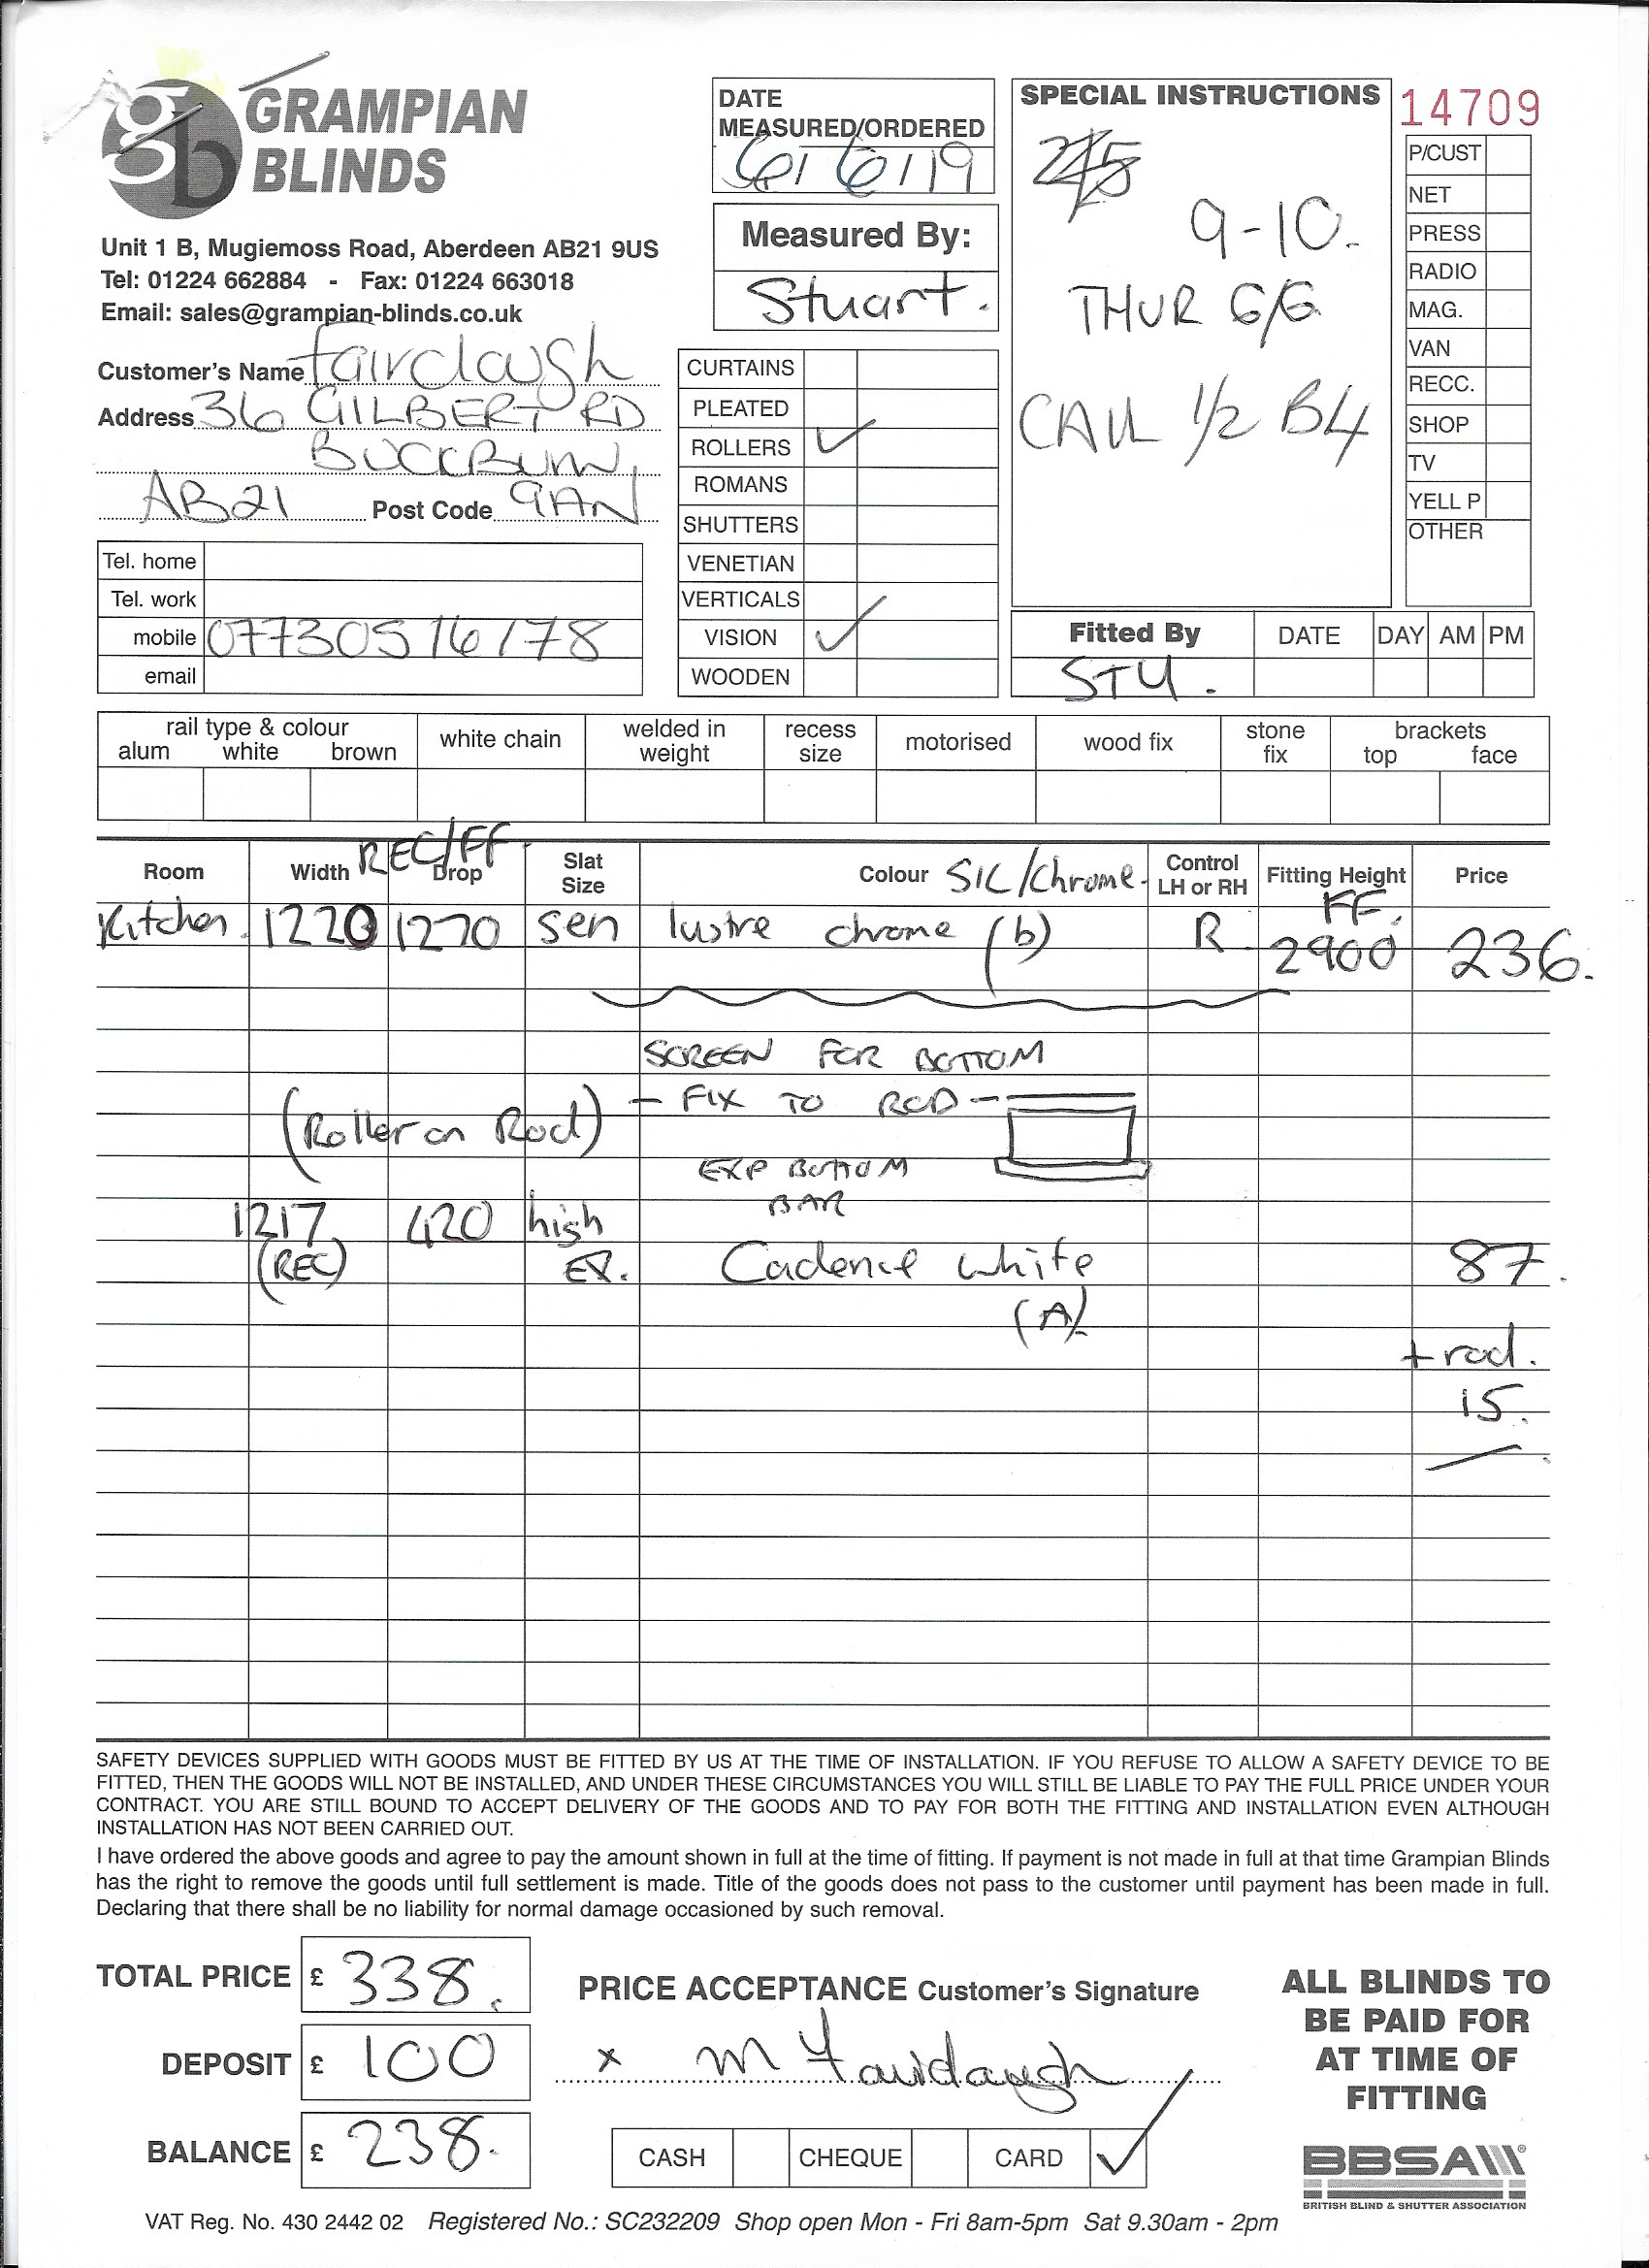 GRAMPIAN
BLINDS
Unit 1 B, Mugiemoss Road, Aberdeen AB21 9US
Tel: 01224 662884 - Fax: 01224 663018
Email: sales@grampian-blinds.co.uk
Customer's Name Fairclough
Address 36 GILBERT RD
BUCKBURN,
AB21 Post Code 9AN
Tel. home
Tel. work
mobile 07730516178
email
DATE
MEASURED/ORDERED
6/6/19
Measured By:
Stuart.
CURTAINS
PLEATED
ROLLERS ✓
ROMANS
SHUTTERS
VENETIAN
VERTICALS
VISION ✓
WOODEN
SPECIAL INSTRUCTIONS
9-10.
THUR 6/6
CALL 1/2 B4
14709
P/CUST
NET
PRESS
RADIO
MAG.
VAN
RECC.
SHOP
TV
YELL P
OTHER
Fitted By DATE DAY AM PM
STU.
rail type & colour white chain welded in weight recess size motorised wood fix stone fix brackets
alum white brown top face
REC/FF.
Room Width Drop Slat Size Colour SIL/Chrome. Control LH or RH Fitting Height Price
Kitchen. 1220 1270 sen lustre chrome (b) R. FF. 2900 236.
SCREEN FOR BOTTOM
- FIX TO ROD -
(Roller on Rod)
EXP BOTTOM
BAR
1217 420 high
(REC) EX. Cadence white 87.
(A)
+ rod.
15.
SAFETY DEVICES SUPPLIED WITH GOODS MUST BE FITTED BY US AT THE TIME OF INSTALLATION. IF YOU REFUSE TO ALLOW A SAFETY DEVICE TO BE
FITTED, THEN THE GOODS WILL NOT BE INSTALLED, AND UNDER THESE CIRCUMSTANCES YOU WILL STILL BE LIABLE TO PAY THE FULL PRICE UNDER YOUR
CONTRACT. YOU ARE STILL BOUND TO ACCEPT DELIVERY OF THE GOODS AND TO PAY FOR BOTH THE FITTING AND INSTALLATION EVEN ALTHOUGH
INSTALLATION HAS NOT BEEN CARRIED OUT.
I have ordered the above goods and agree to pay the amount shown in full at the time of fitting. If payment is not made in full at that time Grampian Blinds
has the right to remove the goods until full settlement is made. Title of the goods does not pass to the customer until payment has been made in full.
Declaring that there shall be no liability for normal damage occasioned by such removal.
TOTAL PRICE £ 338.
DEPOSIT £ 100
BALANCE £ 238.
PRICE ACCEPTANCE Customer's Signature
x M Fairclough
CASH CHEQUE CARD ✓
ALL BLINDS TO
BE PAID FOR
AT TIME OF
FITTING
BBSA
BRITISH BLIND & SHUTTER ASSOCIATION
VAT Reg. No. 430 2442 02 Registered No.: SC232209 Shop open Mon - Fri 8am-5pm Sat 9.30am - 2pm